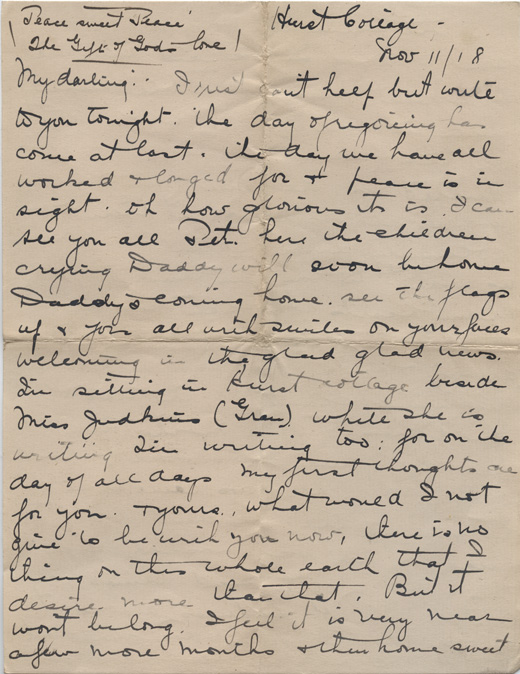 "Peace sweet Peace"
The Gift of Gods love!
Hurst Cottage -
Nov 11/18
My darling. I just can't help but write
to you tonight. The day of regoicing has
come at last. The day we have all
worked & longed for & peace is in
sight. Oh how glorious its is, I can
see you all Pet. hear the children
crying Daddy will soon be home
Daddy's coming home. see the flags
up & you all with smiles on your faces
welcoming in the glad glad news.
I'm sitting in Hurst cottage beside
Miss Judkins (Gran) while she is
writing I'm writing too: for on the
day of all days my first thoughts are
for you. & yours., what would I not
give to be with you now, there is no
thing on this whole earth that I
desire more than that. But it
wont be long. I feel it is very near
a few more months & then home sweet